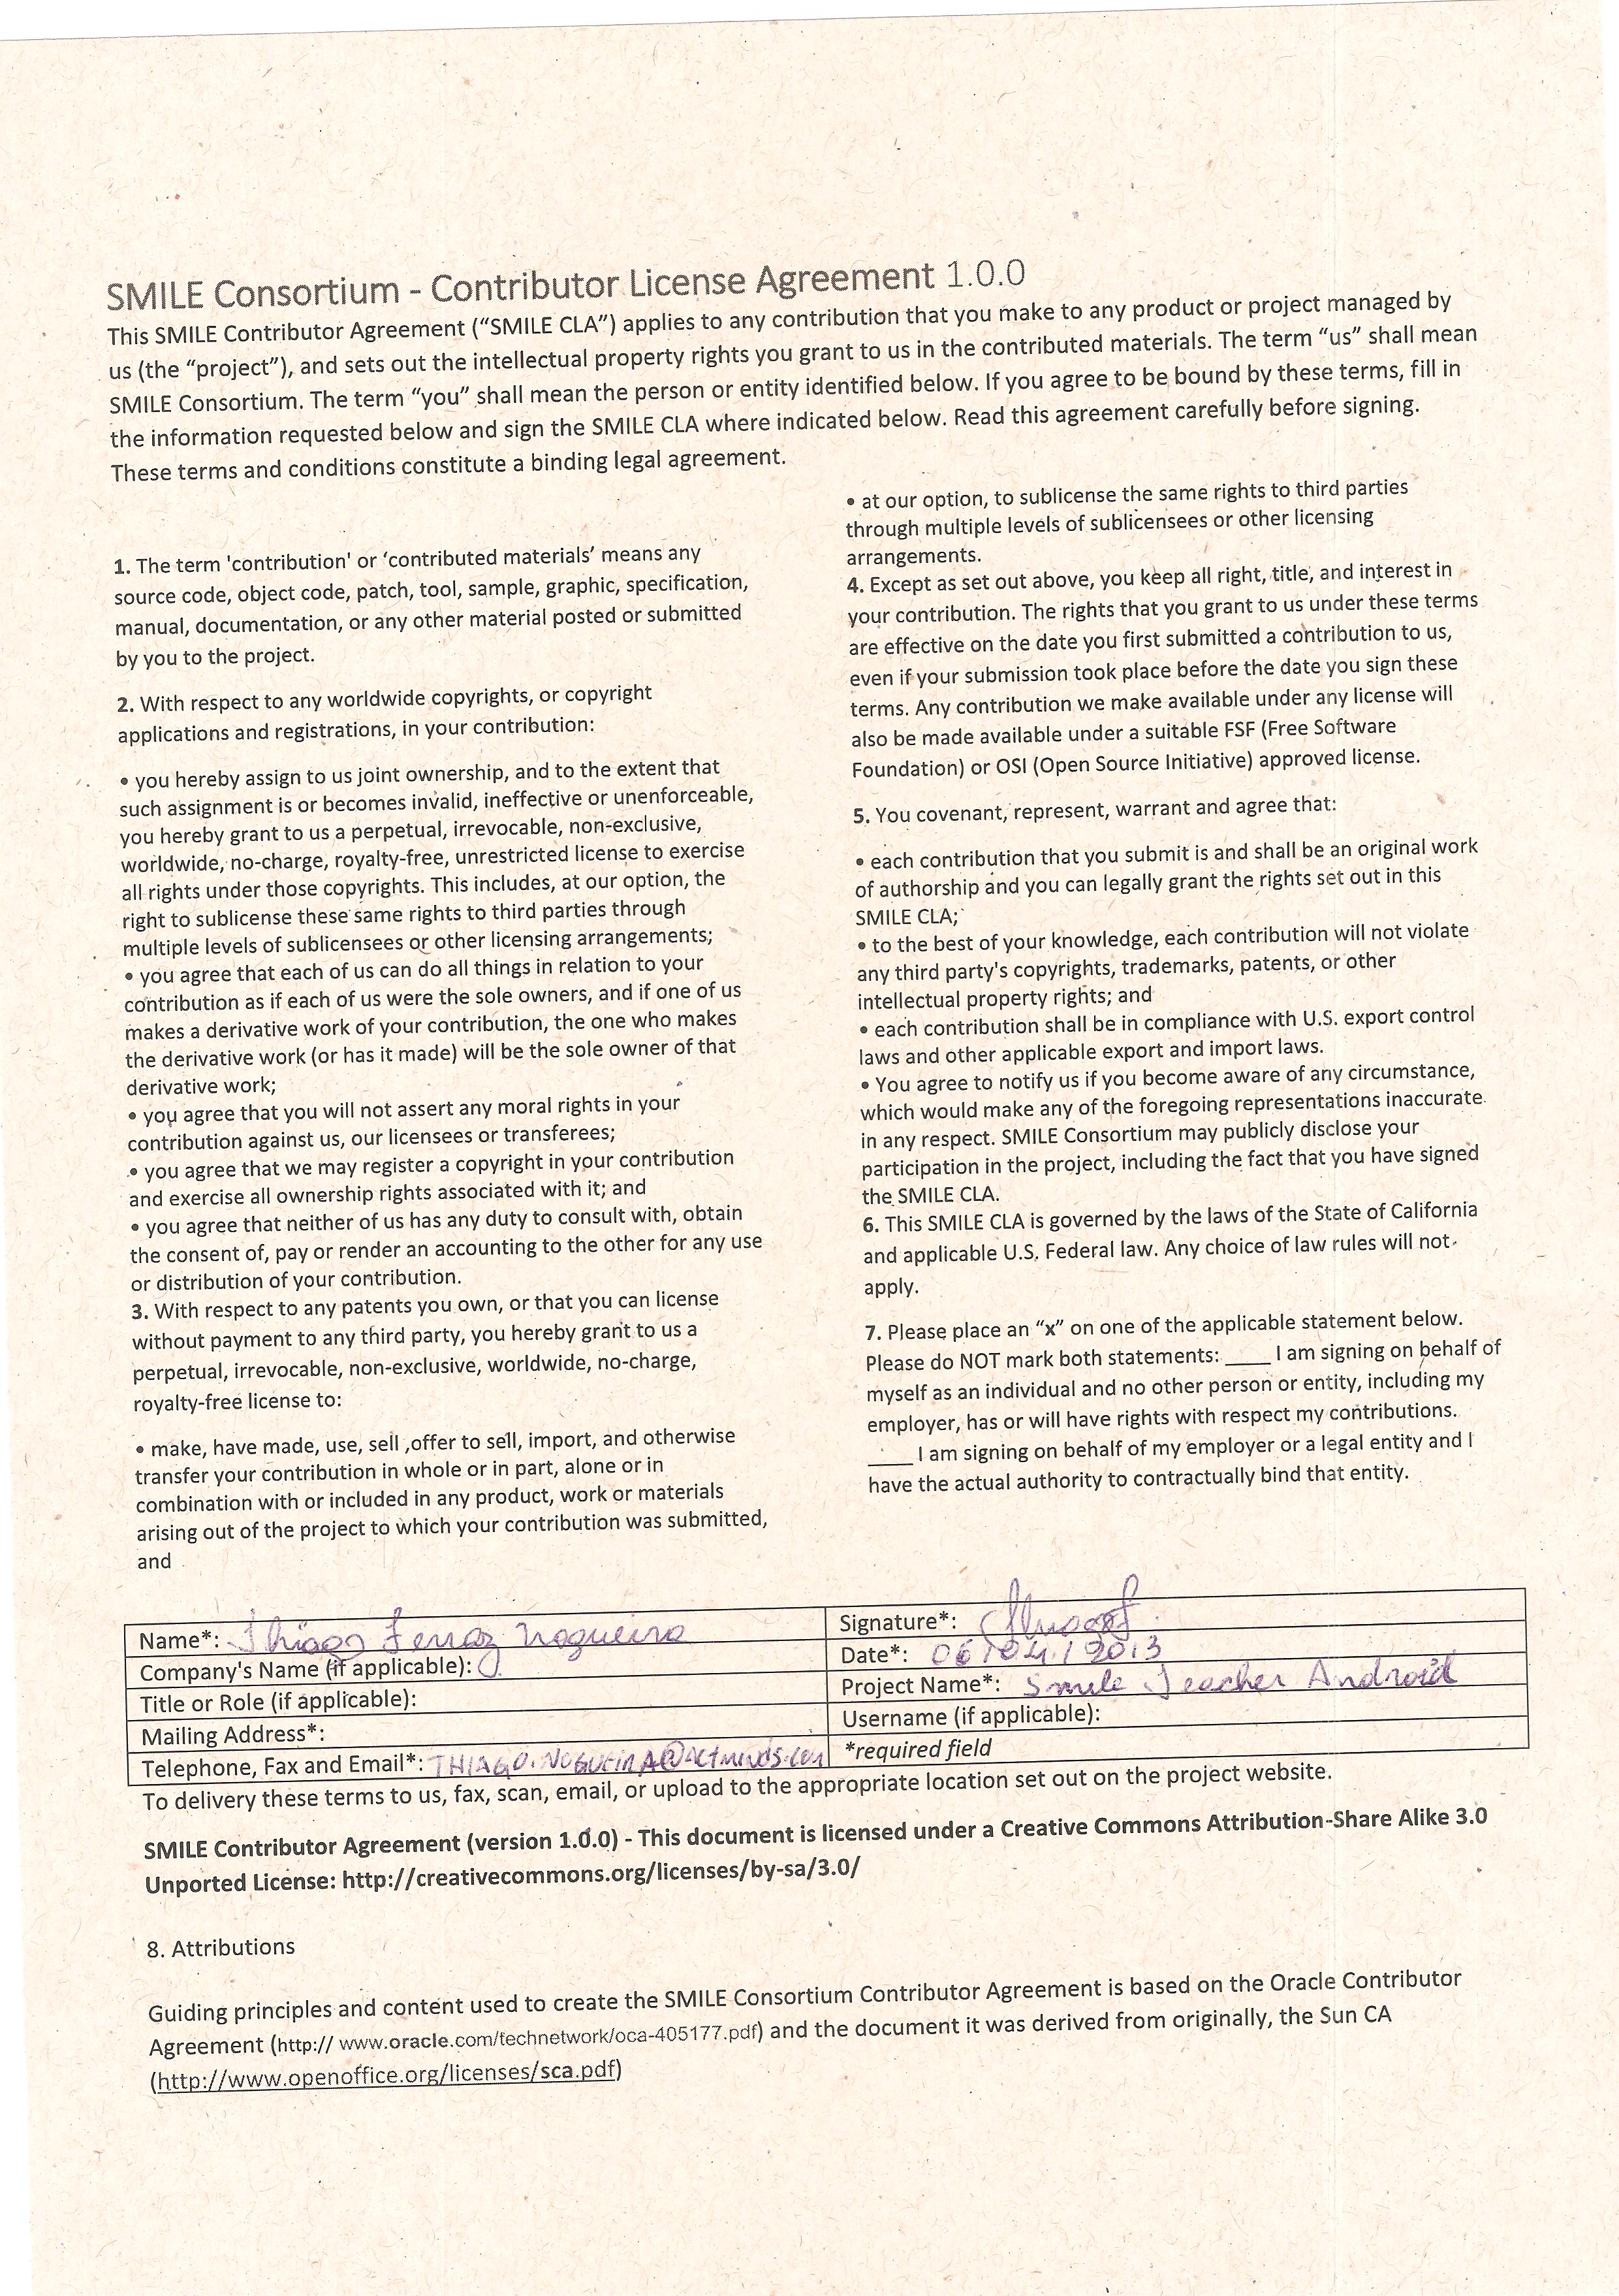 SMILE Consortium - Contributor License Agreement 1.0.0
This SMILE Contributor Agreement (“SMILE CLA”) applies to any contribution that you make to any product or project managed by
us (the “project”), and sets out the intellectual property rights you grant to us in the contributed materials. The term “us” shall mean
SMILE Consortium. The term “you” shall mean the person or entity identified below. If you agree to be bound by these terms, fill in
the information requested below and sign the SMILE CLA where indicated below. Read this agreement carefully before signing.
These terms and conditions constitute a binding legal agreement.
1. The term 'contribution' or ‘contributed materials’ means any
source code, object code, patch, tool, sample, graphic, specification,
manual, documentation, or any other material posted or submitted
by you to the project.
2. With respect to any worldwide copyrights, or copyright
applications and registrations, in your contribution:
• you hereby assign to us joint ownership, and to the extent that
such assignment is or becomes invalid, ineffective or unenforceable,
you hereby grant to us a perpetual, irrevocable, non-exclusive,
worldwide, no-charge, royalty-free, unrestricted license to exercise
all rights under those copyrights. This includes, at our option, the
right to sublicense these same rights to third parties through
multiple levels of sublicensees or other licensing arrangements;
• you agree that each of us can do all things in relation to your
contribution as if each of us were the sole owners, and if one of us
makes a derivative work of your contribution, the one who makes
the derivative work (or has it made) will be the sole owner of that
derivative work;
• you agree that you will not assert any moral rights in your
contribution against us, our licensees or transferees;
• you agree that we may register a copyright in your contribution
and exercise all ownership rights associated with it; and
• you agree that neither of us has any duty to consult with, obtain
the consent of, pay or render an accounting to the other for any use
or distribution of your contribution.
3. With respect to any patents you own, or that you can license
without payment to any third party, you hereby grant to us a
perpetual, irrevocable, non-exclusive, worldwide, no-charge,
royalty-free license to:
• make, have made, use, sell ,offer to sell, import, and otherwise
transfer your contribution in whole or in part, alone or in
combination with or included in any product, work or materials
arising out of the project to which your contribution was submitted,
and
• at our option, to sublicense the same rights to third parties
through multiple levels of sublicensees or other licensing
arrangements.
4. Except as set out above, you keep all right, title, and interest in
your contribution. The rights that you grant to us under these terms
are effective on the date you first submitted a contribution to us,
even if your submission took place before the date you sign these
terms. Any contribution we make available under any license will
also be made available under a suitable FSF (Free Software
Foundation) or OSI (Open Source Initiative) approved license.
5. You covenant, represent, warrant and agree that:
• each contribution that you submit is and shall be an original work
of authorship and you can legally grant the rights set out in this
SMILE CLA;
• to the best of your knowledge, each contribution will not violate
any third party's copyrights, trademarks, patents, or other
intellectual property rights; and
• each contribution shall be in compliance with U.S. export control
laws and other applicable export and import laws.
• You agree to notify us if you become aware of any circumstance,
which would make any of the foregoing representations inaccurate
in any respect. SMILE Consortium may publicly disclose your
participation in the project, including the fact that you have signed
the SMILE CLA.
6. This SMILE CLA is governed by the laws of the State of California
and applicable U.S. Federal law. Any choice of law rules will not
apply.
7. Please place an “x” on one of the applicable statement below.
Please do NOT mark both statements: ____ I am signing on behalf of
myself as an individual and no other person or entity, including my
employer, has or will have rights with respect my contributions.
____ I am signing on behalf of my employer or a legal entity and I
have the actual authority to contractually bind that entity.
Name*: Thiago Ferraz Nogueira
Company's Name (if applicable):
Title or Role (if applicable):
Mailing Address*:
Telephone, Fax and Email*: THIAGO.NOGUEIRA@ACTMINDS.COM
Signature*:
Date*: 06/04/2013
Project Name*: Smile Teacher Android
Username (if applicable):
*required field
To delivery these terms to us, fax, scan, email, or upload to the appropriate location set out on the project website.
SMILE Contributor Agreement (version 1.0.0) - This document is licensed under a Creative Commons Attribution-Share Alike 3.0
Unported License: http://creativecommons.org/licenses/by-sa/3.0/
8. Attributions
Guiding principles and content used to create the SMILE Consortium Contributor Agreement is based on the Oracle Contributor
Agreement (http:// www.oracle.com/technetwork/oca-405177.pdf) and the document it was derived from originally, the Sun CA
(http://www.openoffice.org/licenses/sca.pdf)